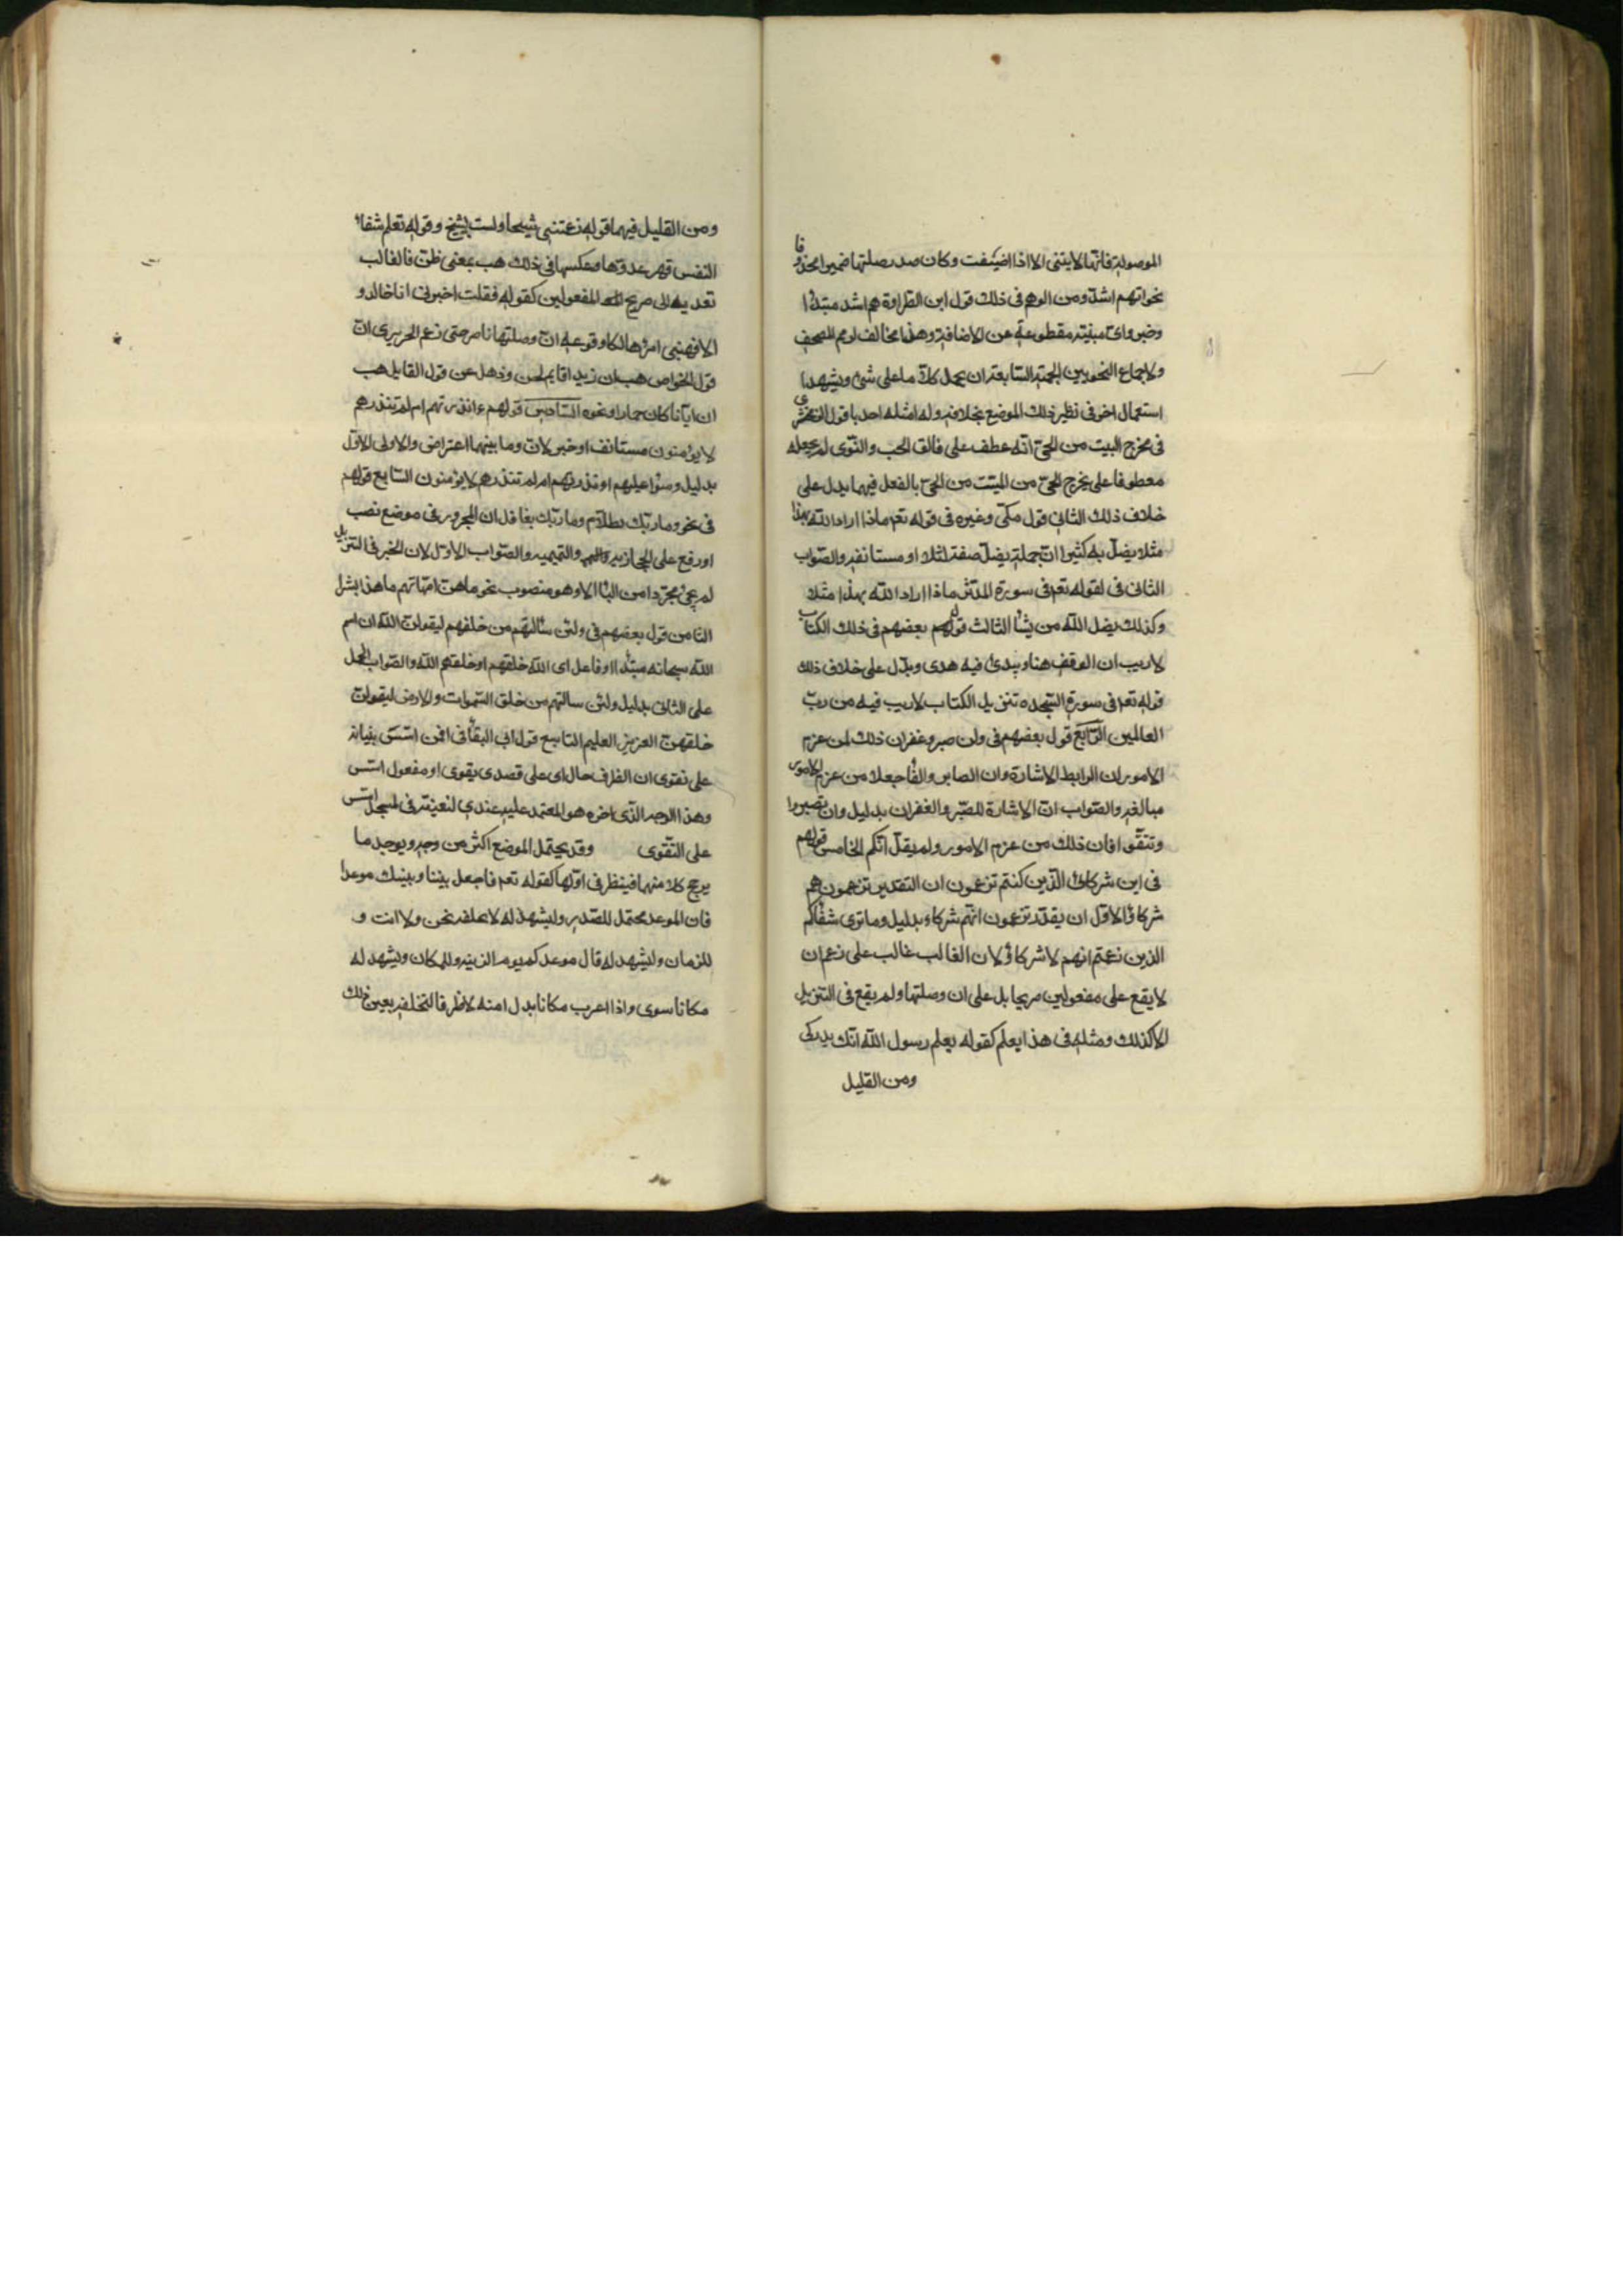 الموصولة فانها لا يبنى الا اذا اضيفت وكان صدر صلتها ضميرا محذوفا
نحو ايهم اشد ومن الوهم فى ذلك قول ابن الطراوة هم اشد مبتدأ
وخبر واى مبنية مقطوعة عن الاضافة وهذا مخالف لرسم المصحف
ولاجماع النحويين الجهة السابعة ان يحمل كلاما على شئ ويشهد
استعمال اخر فى نظير ذلك الموضع بخلافه وله امثلة احدها قول الزمخشرى
فى مخرج الميت من الحىّ انه عطف على فالق الحب والنوى لم يجعله
معطوفا على يخرج الحىّ من الميت من الحىّ بالفعل فيهما يدل على
خلاف ذلك الثانى قول مكى وغيره فى قوله تعم ماذا اراد الله بهذا
مثلا يضلّ به كثيرا انّ جملة يضلّ صفة لمثلا او مستانفة والصّواب
الثانى فى لقوله تعم فى سورة المدثر ماذا اراد الله بهذا مثلا
وكذلك يضل الله من يشأ الثالث قولهم بعضهم فى ذلك الكتاب
لا ريب ان الوقف هنا ويبدئ فيه هدى ويدل على خلاف ذلك
قوله تعم فى سورة السجده تنزيل الكتاب لا ريب فيه من ربّ
العالمين الرّابع قول بعضهم فى ولمن صبر وغفران ذلك لمن عزم
الامور ان الرابط الاشارة وان الصابر والغافر جعلا من عزم الامور
مبالغة والصّواب انّ الاشارة للصّبر والغفران بدليل وان تصبروا
وتتقّوا فان ذلك من عزم الامور ولم يقل انكم الخامس قولهم
فى اين شركائ الّذين كنتم تزعمون ان التقدير تزعمون هم
شركائ والاول ان يقدّر تزعمون انهّم شركاء بدليل وما نرى شفعاكم
الذين زعمتم انهم لا شركاؤ لان الغالب غالب على زعم ان
لا يقع على مفعولين صريحا بل على ان وصلتها ولم يقع فى التنزيل
الا كذلك ومثله فى هذا يعلم كقوله يعلم رسول الله انّك مدركى
ومن القليل
ومن القليل فيهما قوله زعمتنى شيخا ولست بشيخ وقوله تعلم شفاء
النفس قهر عدوّها وعكسهما فى ذلك هب بمعنى ظنّ فالغالب
تعديه الى صريح المفعولين كقوله فقلت اجرنى ابا خالد و
الا فهبنى امرءا هالكا وقوعه انّ وصلتها نادر حتى زعم الحريرى انّ
قول الخواص هب ان زيدا قايم لحن وذهل عن قول القايل هب
ان ابانا كان حمارا ونحوه السّادس قولهم ءانذرتهم ام لم تنذرهم
لا يؤمنون مستانف او خبر لانّ وما بينهما اعتراض والاولى الاوّل
بدليل وسواء عليهم ءانذرتهم ام لم تنذرهم لا يؤمنون السّابع قولهم
فى نحو وما ربّك بظلاّم وما ربّك بغافل ان المجرور فى موضع نصب
او رفع على الحجازيه والتميميه والصّواب الاوّل لان الخبر فى التنزيل
لم يجئ مجرّدا من البأ الا وهو منصوب نحو ما هنّ امّهاتهم ما هذا بشرا
الثامن قول بعضهم فى ولئن سألتهم من خلقهم ليقولنّ الله ان اسم
الله سبحانه مبتدأ او فاعل اى الله خلقهم او خلقهم الله والصّواب الحمل
على الثانى بدليل ولئن سالتهم من خلق السّموات والارض ليقولنّ
خلقهنّ العزيز العليم التاسع قول ابى البقأ فى افمن اسّس بنيانه
على تقوى ان الظرف حال اى على قصد تقوى او مفعول اسّس
وهذا الوجه الّذى اخره هو المعتمد عليه عندى لتعينه فى لمسجد اسّس
على التّقوى وقد يحتمل الموضع اكثر من وجه ويوجد ما
يرجح كلا منهما فينظر فى اوّلها كقوله تعم فاجعل بيننا وبينك موعدا
فان الموعد محتمل للصّدر وليشهد له لا نخلفه نحن ولا انت و
للزمان وليشهد له قال موعدكم يوم الزينه وللمكان ويشهد له
مكانا سوى واذا اعرب مكانا بدلا منه لا ظرفا لنخلفه بعين ذلك